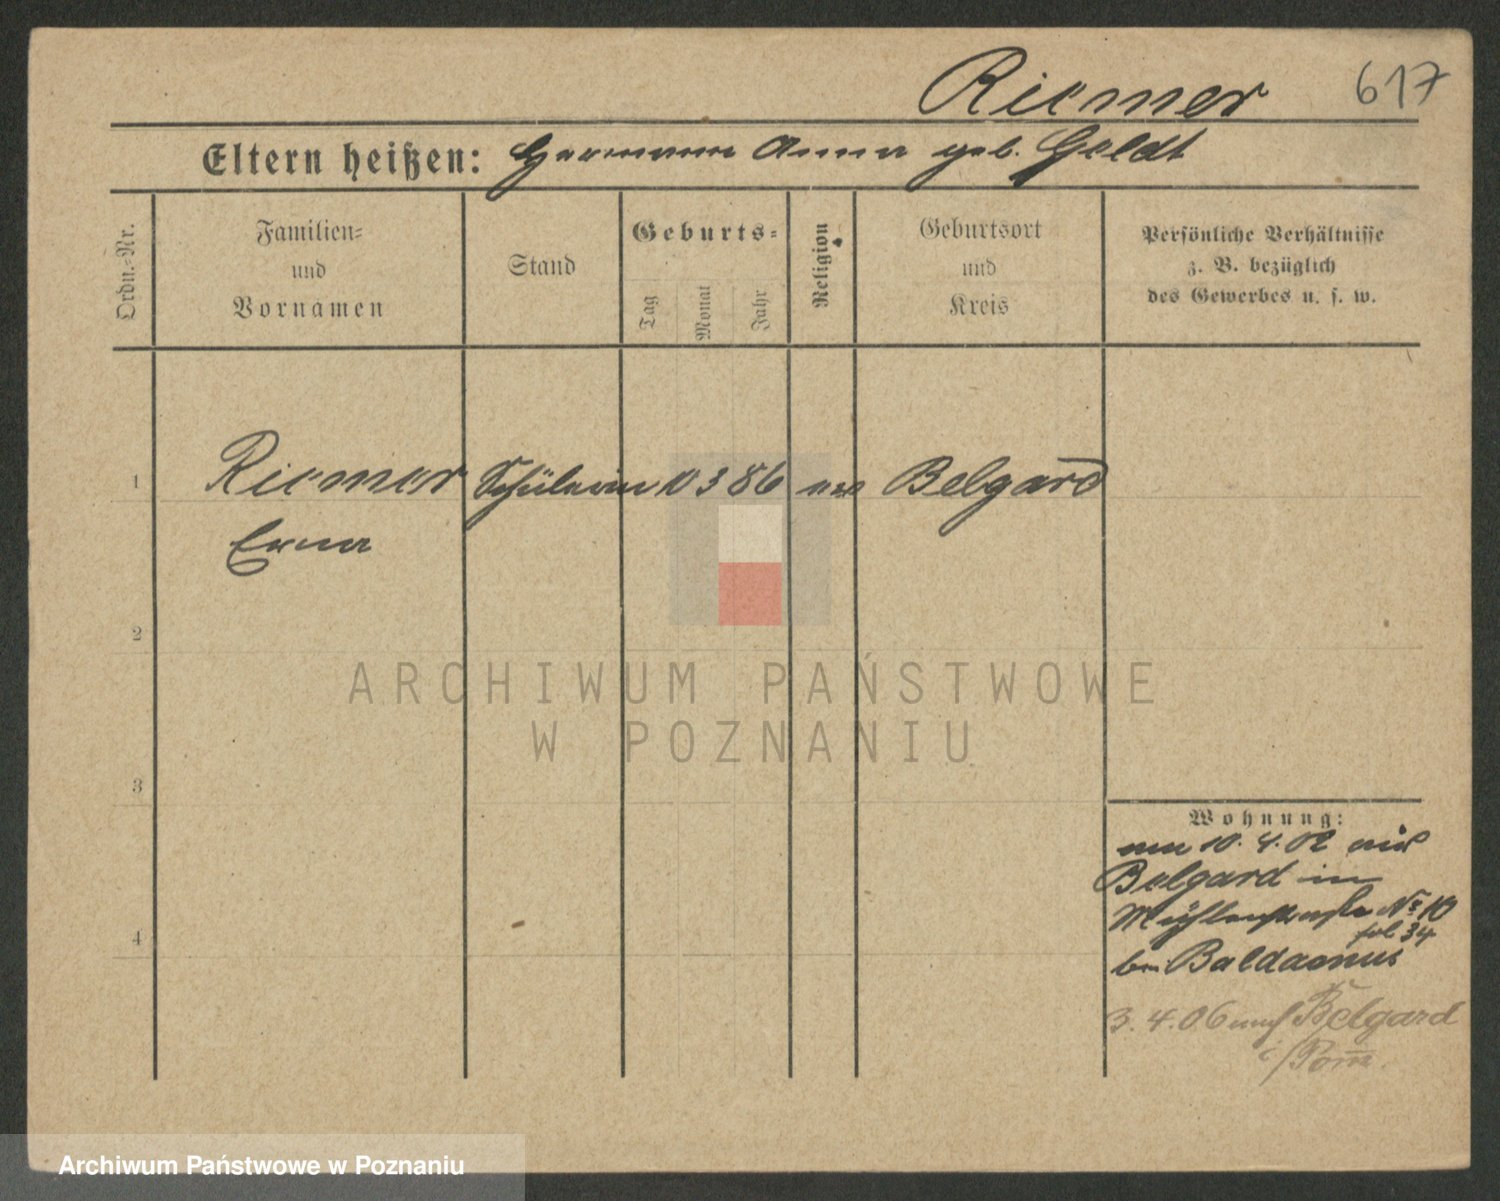 Riemer 617
Eltern heißen: Hermann Anna geb. Goldt
Ordn.-Nr.
Familien-
und
Vornamen
Stand
Geburts-
Tag
Monat
Jahr
Religion
Geburtsort
und
Kreis
Persönliche Verhältnisse
z. B. bezüglich
des Gewerbes u. s. w.
1 Riemer Schülerin 10 3 86 ev Belgard
Erna
2
3
4
Wohnung:
am 10. 4. 02 aus
Belgard in
Mühlenstraße No 10
fol 34
bei
3. 4. 06 nach Belgard
i/Pom.
ARCHIWUM PAŃSTWOWE
W POZNANIU
Archiwum Państwowe w Poznaniu